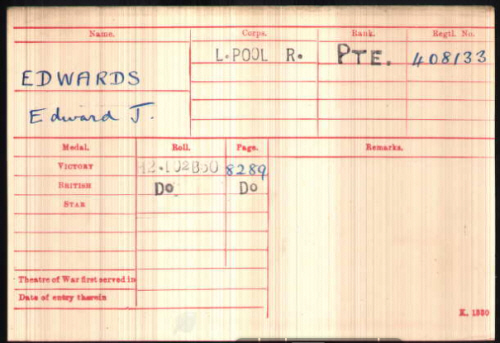 Name. Corps. Rank. Regtl. No.
EDWARDS L·POOL R. PTE. 408133
Edward J.
Medal. Roll. Page. Remarks.
VICTORY 8289
BRITISH Do Do
STAR
Theatre of War first served in
Date of entry therein
K. 1380